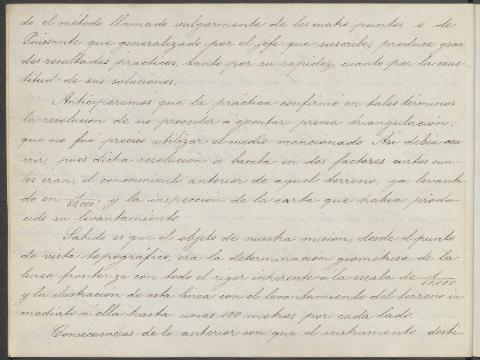 do el método llamado vulgarmente de los cuatro puntos o de
Puissant que generalizado por el jefe que suscribe, produce gran
des resultados prácticos, tanto por su rapidez, cuanto por la exac-
titud de sus soluciones.
Anticiparemos que la práctica confirmó en tales términos
la resolución de no proceder á ejecutar previa triangulación,
que no fué preciso utilizar el medio mencionado. Así debía ocu
rrir, pues dicha resolución se basaba en dos factores ciertos cua
les eran; el conocimiento anterior de aquel terreno, ya levanta-
do en 1/50,000, y la inspección de la carta que había produ-
cido su levantamiento
Sabido es que el objeto de nuestra misión, desde el punto
de vista topográfico, era la determinación geométrica de la
línea fronteriza con todo el rigor inherente a la escala de 1/10,000
y la ilustración de esta línea con el levantamiento del terreno in
mediato a ella hasta unos 100 metros por cada lado.
Consecuencias de lo anterior son que el instrumento desti-